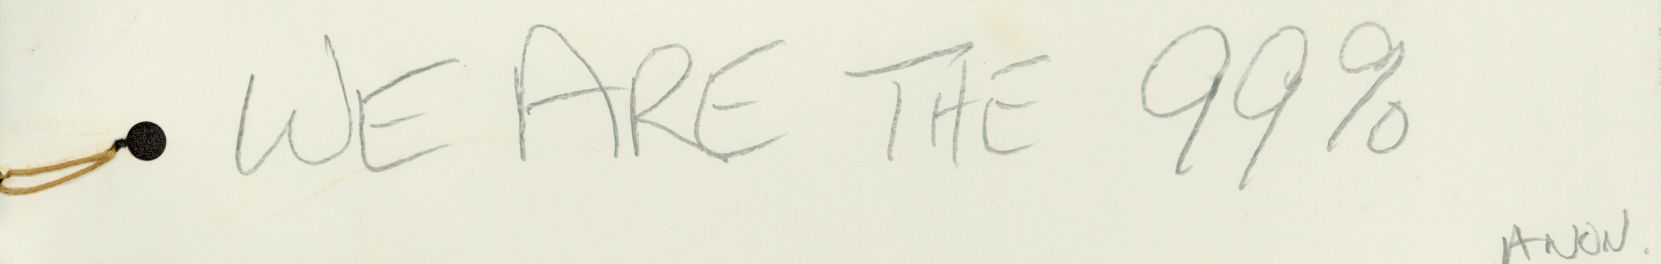 WE ARE THE 99%
ANON.